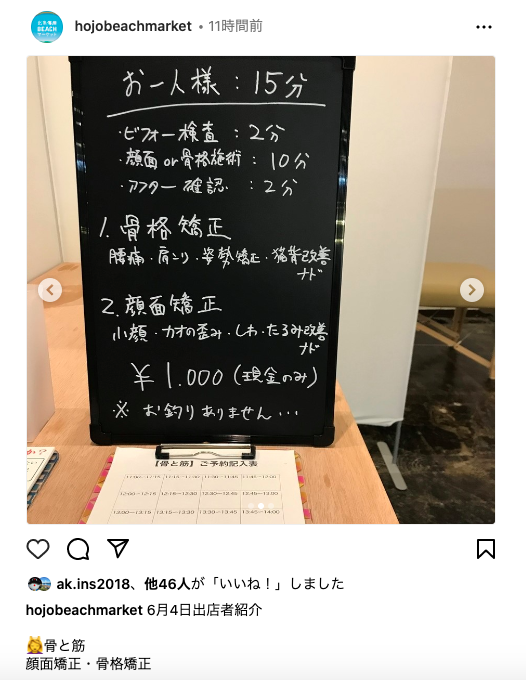 北条海岸
BEACH
マーケット
hojobeachmarket • 11時間前
お一人様：15分
・ビフォー検査：2分
・顔面or骨格施術：10分
・アフター確認：2分
1. 骨格矯正
腰痛・肩こり・姿勢矯正・猫背改善
ナド
2. 顔面矯正
小顔・カオの歪み・しわ・たるみ改善
ナド
￥1.000（現金のみ）
※ お釣りありません…
か?
【骨と筋】ご予約記入表
12:00〜12:15 12:15〜12:30 12:30〜12:45 12:45〜13:00
13:00〜13:15 13:15〜13:30 13:30〜13:45 13:45〜14:00
ak.ins2018、他46人が「いいね！」しました
hojobeachmarket 6月4日出店者紹介
💆骨と筋
顔面矯正・骨格矯正